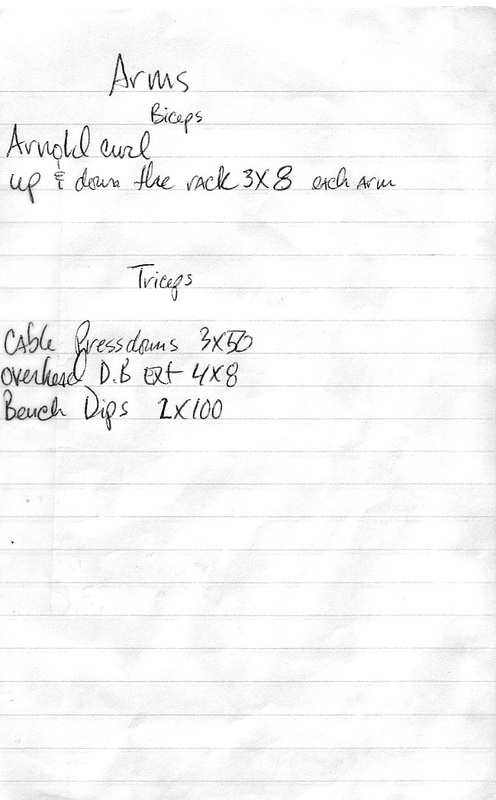 Arms
Biceps
Arnold curl
up & down the rack 3X8 each Arm
Triceps
CAble Pressdowns 3X50
overhead D.B Ext 4X8
Bench Dips 2X100